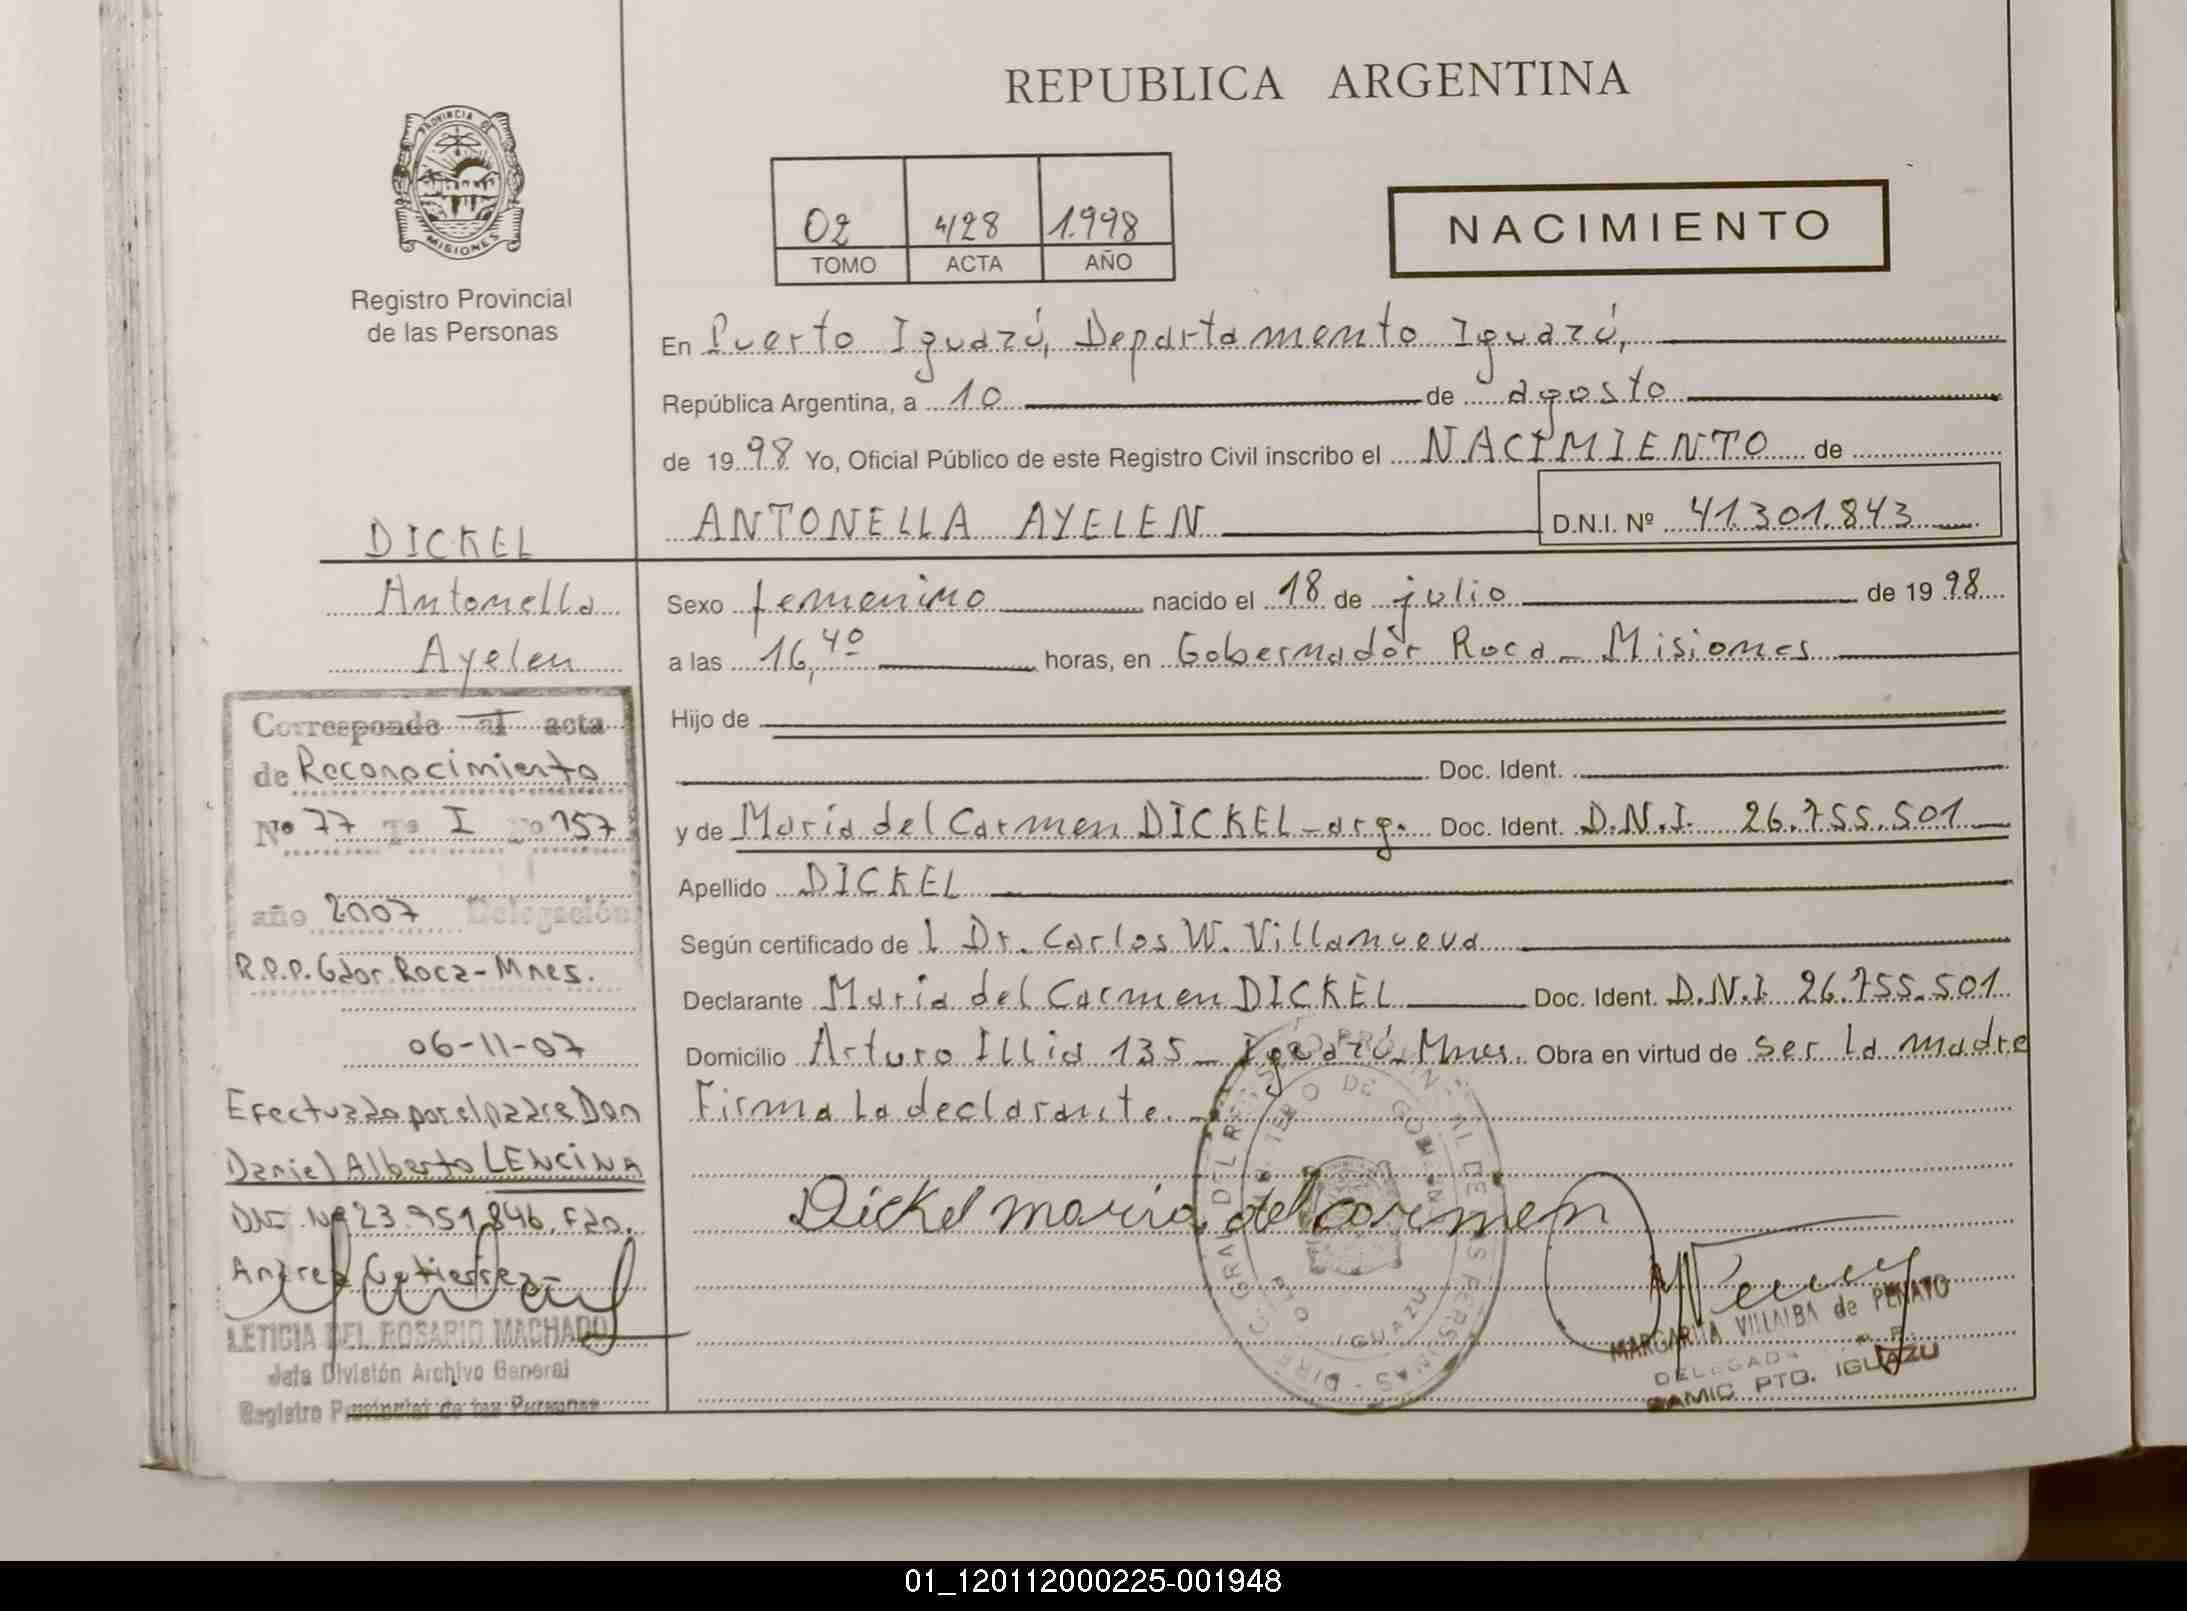 REPUBLICA ARGENTINA
PROVINCIA DE
MISIONES
Registro Provincial
de las Personas
02 428 1.998
TOMO ACTA AÑO
NACIMIENTO
En Puerto Iguazú, Departamento Iguazú,
República Argentina, a 10 de agosto
de 1998 Yo, Oficial Público de este Registro Civil inscribo el NACIMIENTO de
ANTONELLA AYELEN D.N.I. Nº 41.301.843
Sexo femenino nacido el 18 de julio de 1998
a las 16,40 horas, en Gobernador Roca - Misiones
Hijo de
Doc. Ident.
y de María del Carmen DICKEL - arg. Doc. Ident. D.N.I. 26.755.501
Apellido DICKEL
Según certificado de l Dr. Carlos W. Villanueva
Declarante María del Carmen DICKEL Doc. Ident. D.N.I. 26.755.501
Domicilio Arturo Illia 135 - Iguazú - Mnes. Obra en virtud de ser la madre
Firma la declarante.-
Dickel maria del carmen
MARGARITA VILLALBA de PENAYO
PTO. IGUAZU
DICKEL
Antonella
Ayelen
Corresponde al acta
de Reconocimiento
Nº 77 Tº I Fº 157
año 2007 Delegación
R.P.P. Gdor. Roca - Mnes.
06-11-07
Efectuado por el padre Don
Daniel Alberto LENCINA
DNI Nº 23.951.846. Fdo.
Andrea Gutierrez-
LETICIA DEL ROSARIO MACHADO
Jefa División Archivo General
Registro Provincial de las Personas
01_120112000225-001948